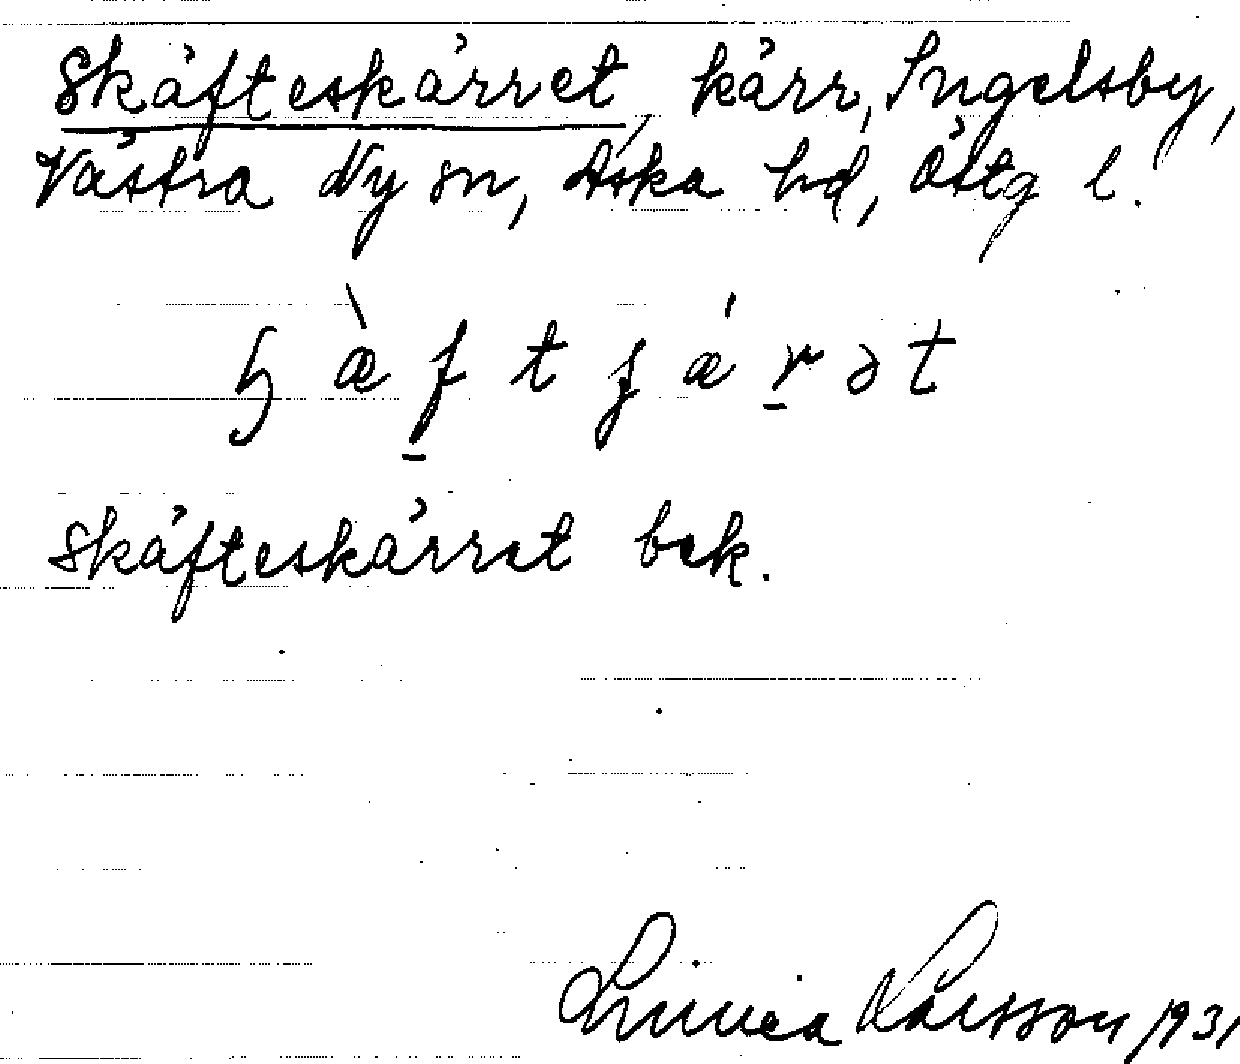 Skäfteskärret, kärr, Ingelsby,
Västra Ny sn, Aska hd, Östg l.
skäfteskärret bek.
Linnea Larsson 1931